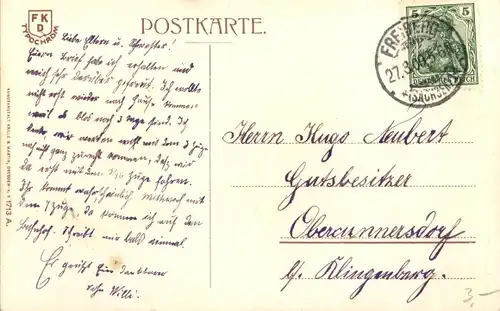 FKD
TYPOCHROM
POSTKARTE.
5 5
FREIBERG
27.3.09
(SACHSEN)
DEUTSCHES REICH
Liebe Eltern u. Schwester!
Euren Brief habe ich erhalten und
mich sehr darüber gefreut. Ich wollte
nicht erst wieder nach Hause kommen
weil es blos noch 3 Tage sind. Ich
denke, wir werden wohl mit dem 3 Zuge
noch nicht ganz zurecht kommen, daß wir
da erst mit dem Zuge fahren.
Ihr kommt wahrscheinlich Mittwoch mit
dem 7 Zuge. Da komme ich auf den
Bahnhof. Schreibt mir bald einmal.
Es grüßt Euer dankbarer
Sohn Willi.
Herrn Hugo Neubert
Gutsbesitzer
Obercunnersdorf
b/ Klingenberg.
1713 A.
3,-